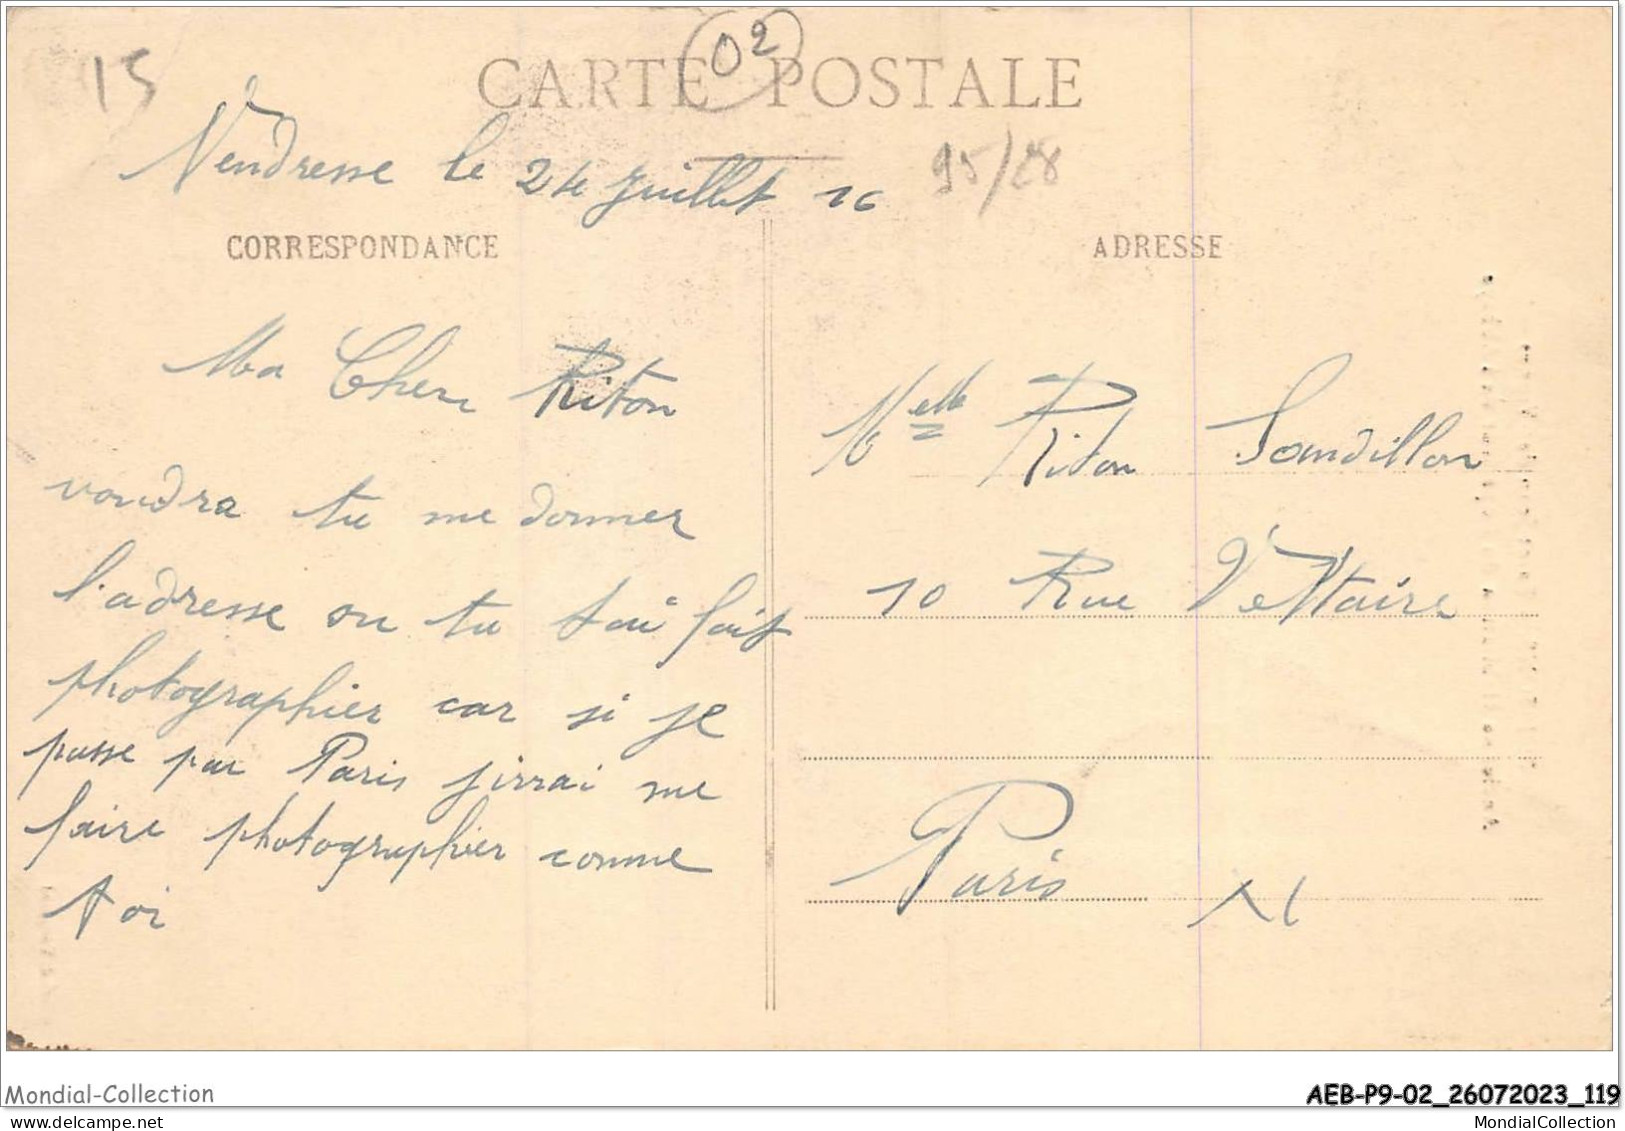 15
02
CARTE POSTALE
Vendresse le 24 Juillet 16
95/28
CORRESPONDANCE
ADRESSE
Ma Cher Riton
voudra tu me donner
l'adresse ou tu tai fait
photographier car si je
passe par Paris jirrai me
faire photographier comme
toi
Melle Riton Sandillon
10 Rue
Paris XI
Mondial-Collection
AEB-P9-02_26072023_119
Mondial Collection
MondialCollection